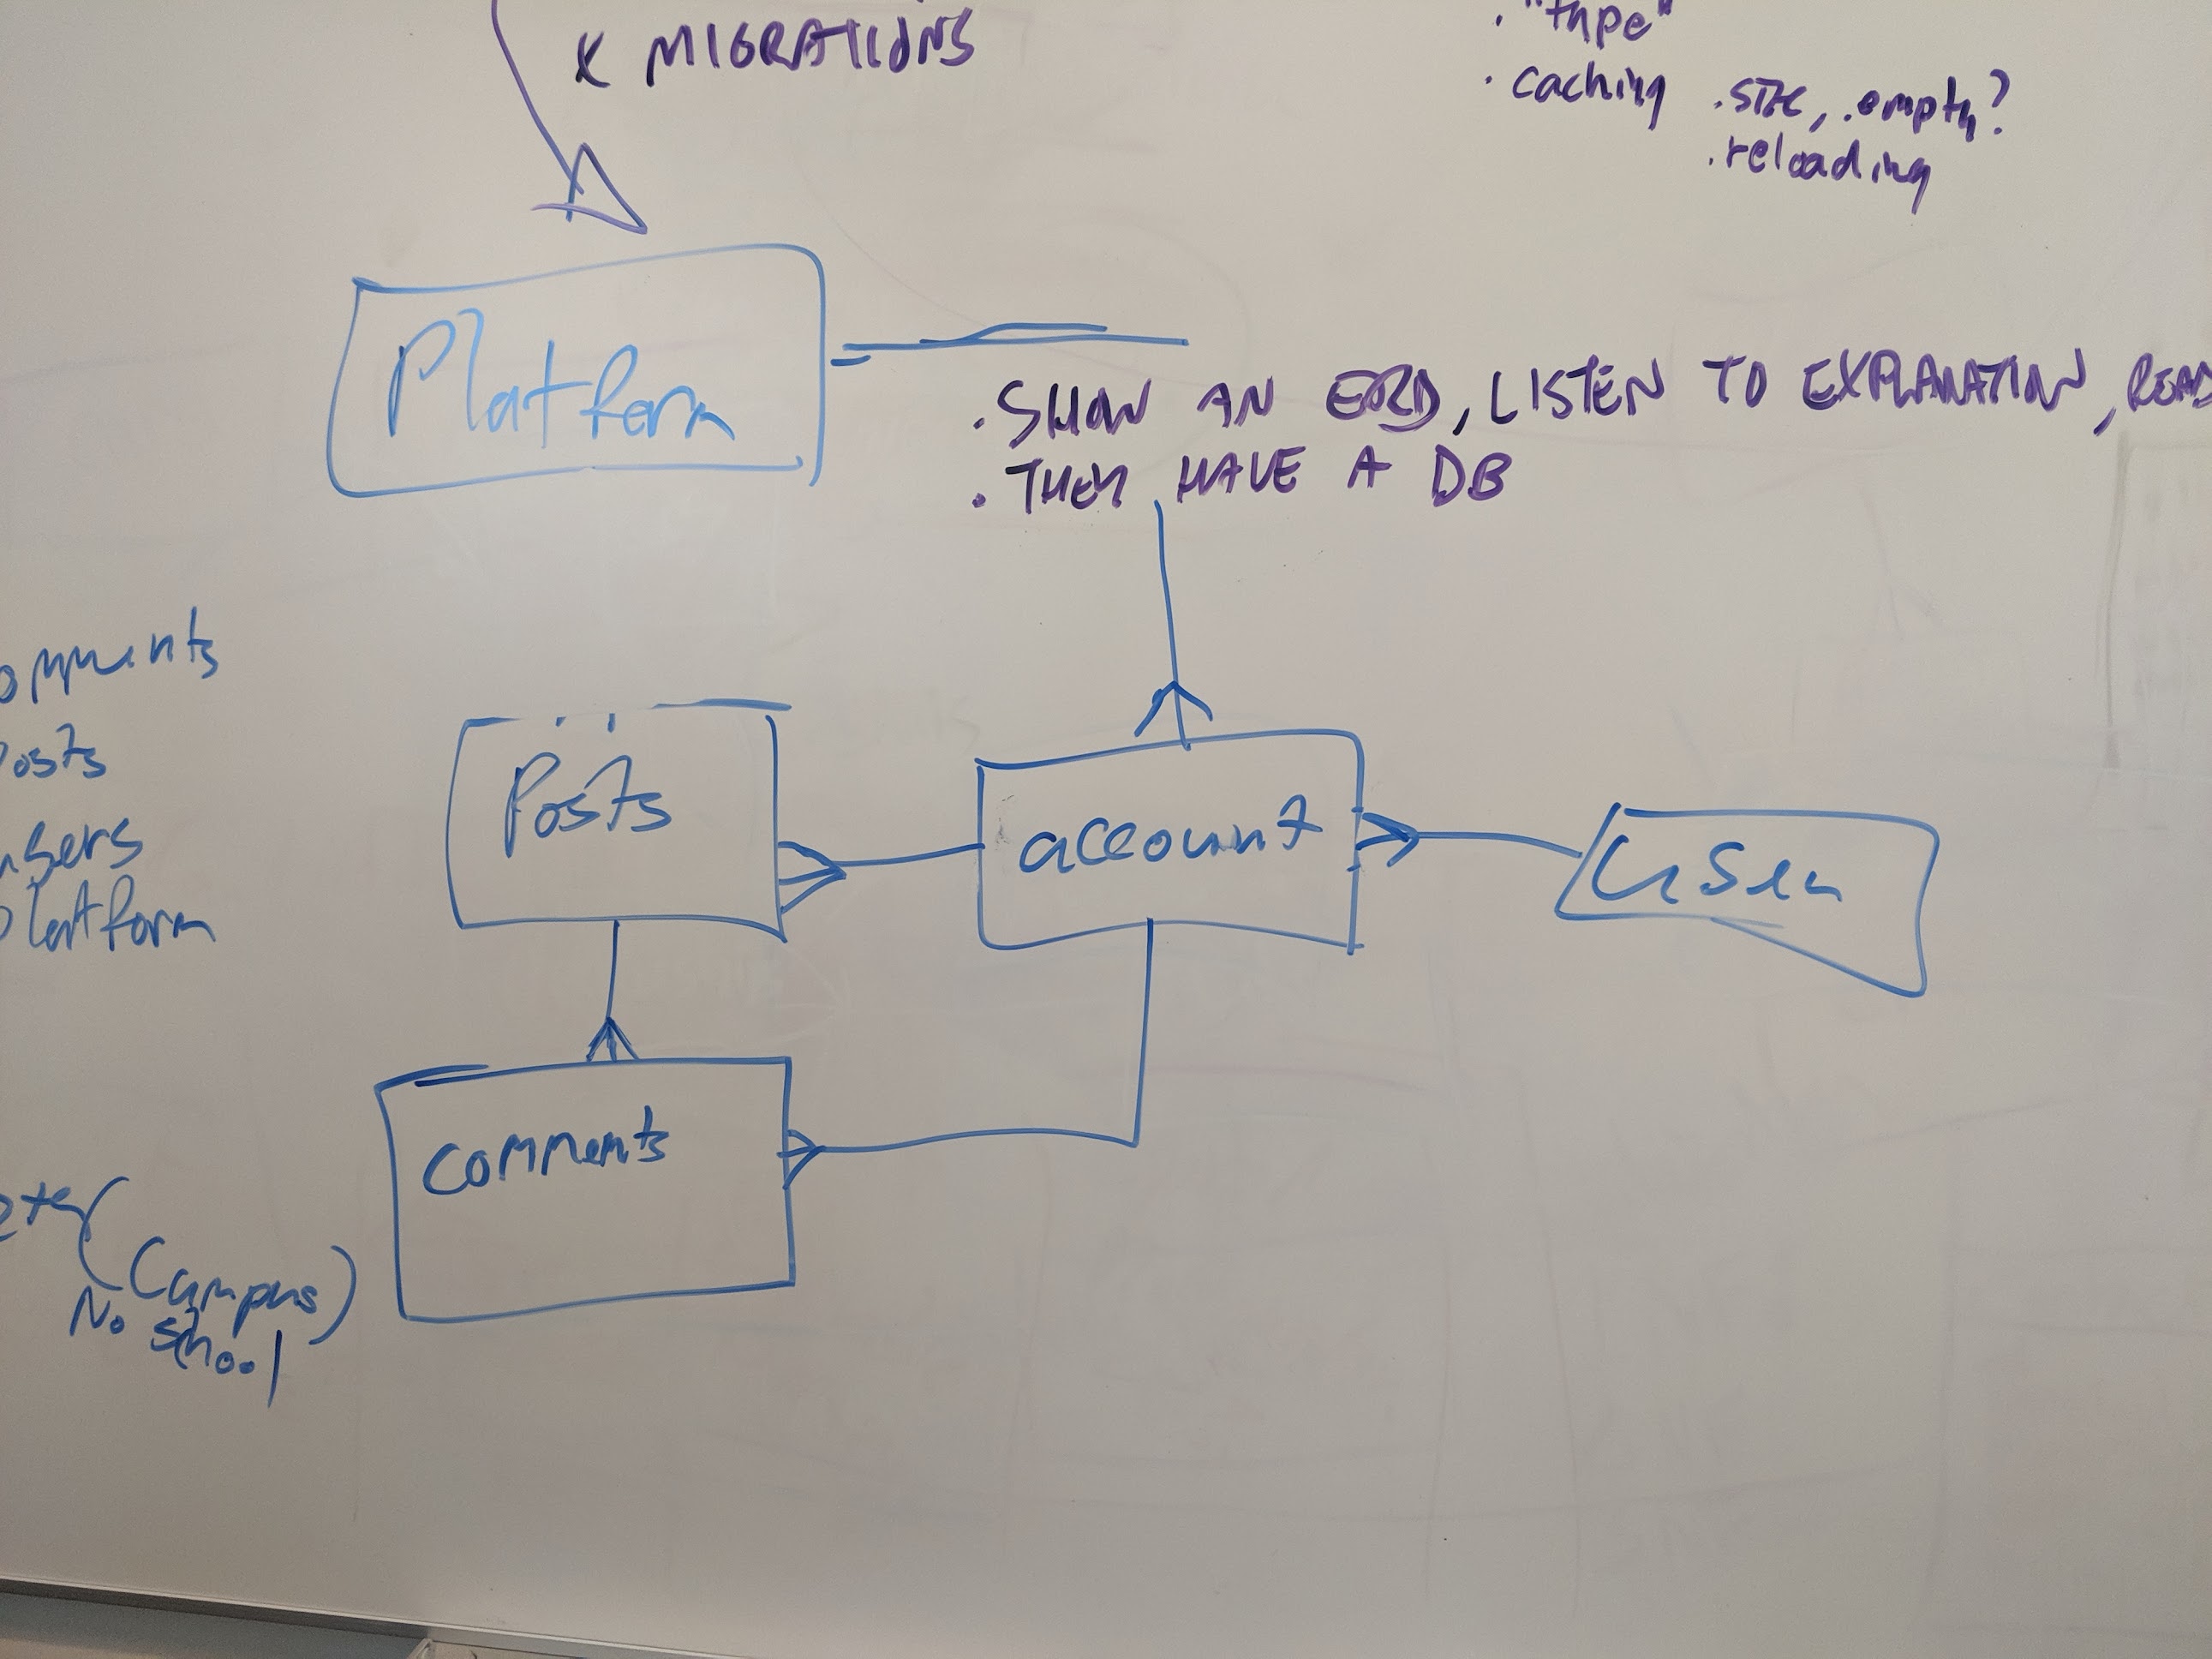 X MIGRATIONS
. "type"
. caching .size, .empty?
.reloading
Platform
. SHOW AN ERD, LISTEN TO EXPLANATION, READ
. THEN HAVE A DB
omments
osts
Posts
account
User
sers
Platform
comments
(Campus)
No school